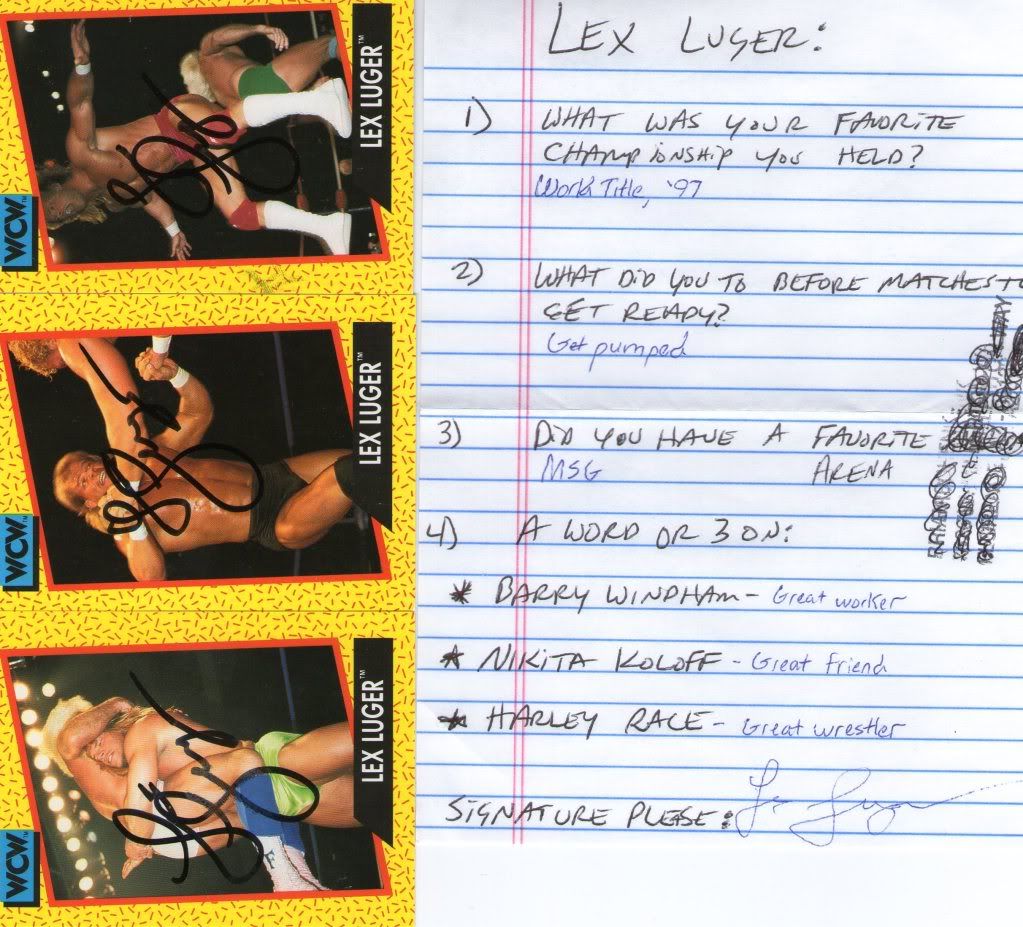 WCW™
LEX LUGER™
WCW™
LEX LUGER™
WCW™
LEX LUGER™
LEX LUGER:
1) WHAT WAS YOUR FAVORITE
CHAMPIONSHIP YOU HELD?
World Title, '97
2) WHAT DID YOU TO BEFORE MATCHES TO
GET READY?
Get pumped
3) DID YOU HAVE A FAVORITE
MSG ARENA
4) A WORD OR 3 ON:
* BARRY WINDHAM - Great worker
* NIKITA KOLOFF - Great friend
* HARLEY RACE - Great wrestler
SIGNATURE PLEASE: Lex Luger